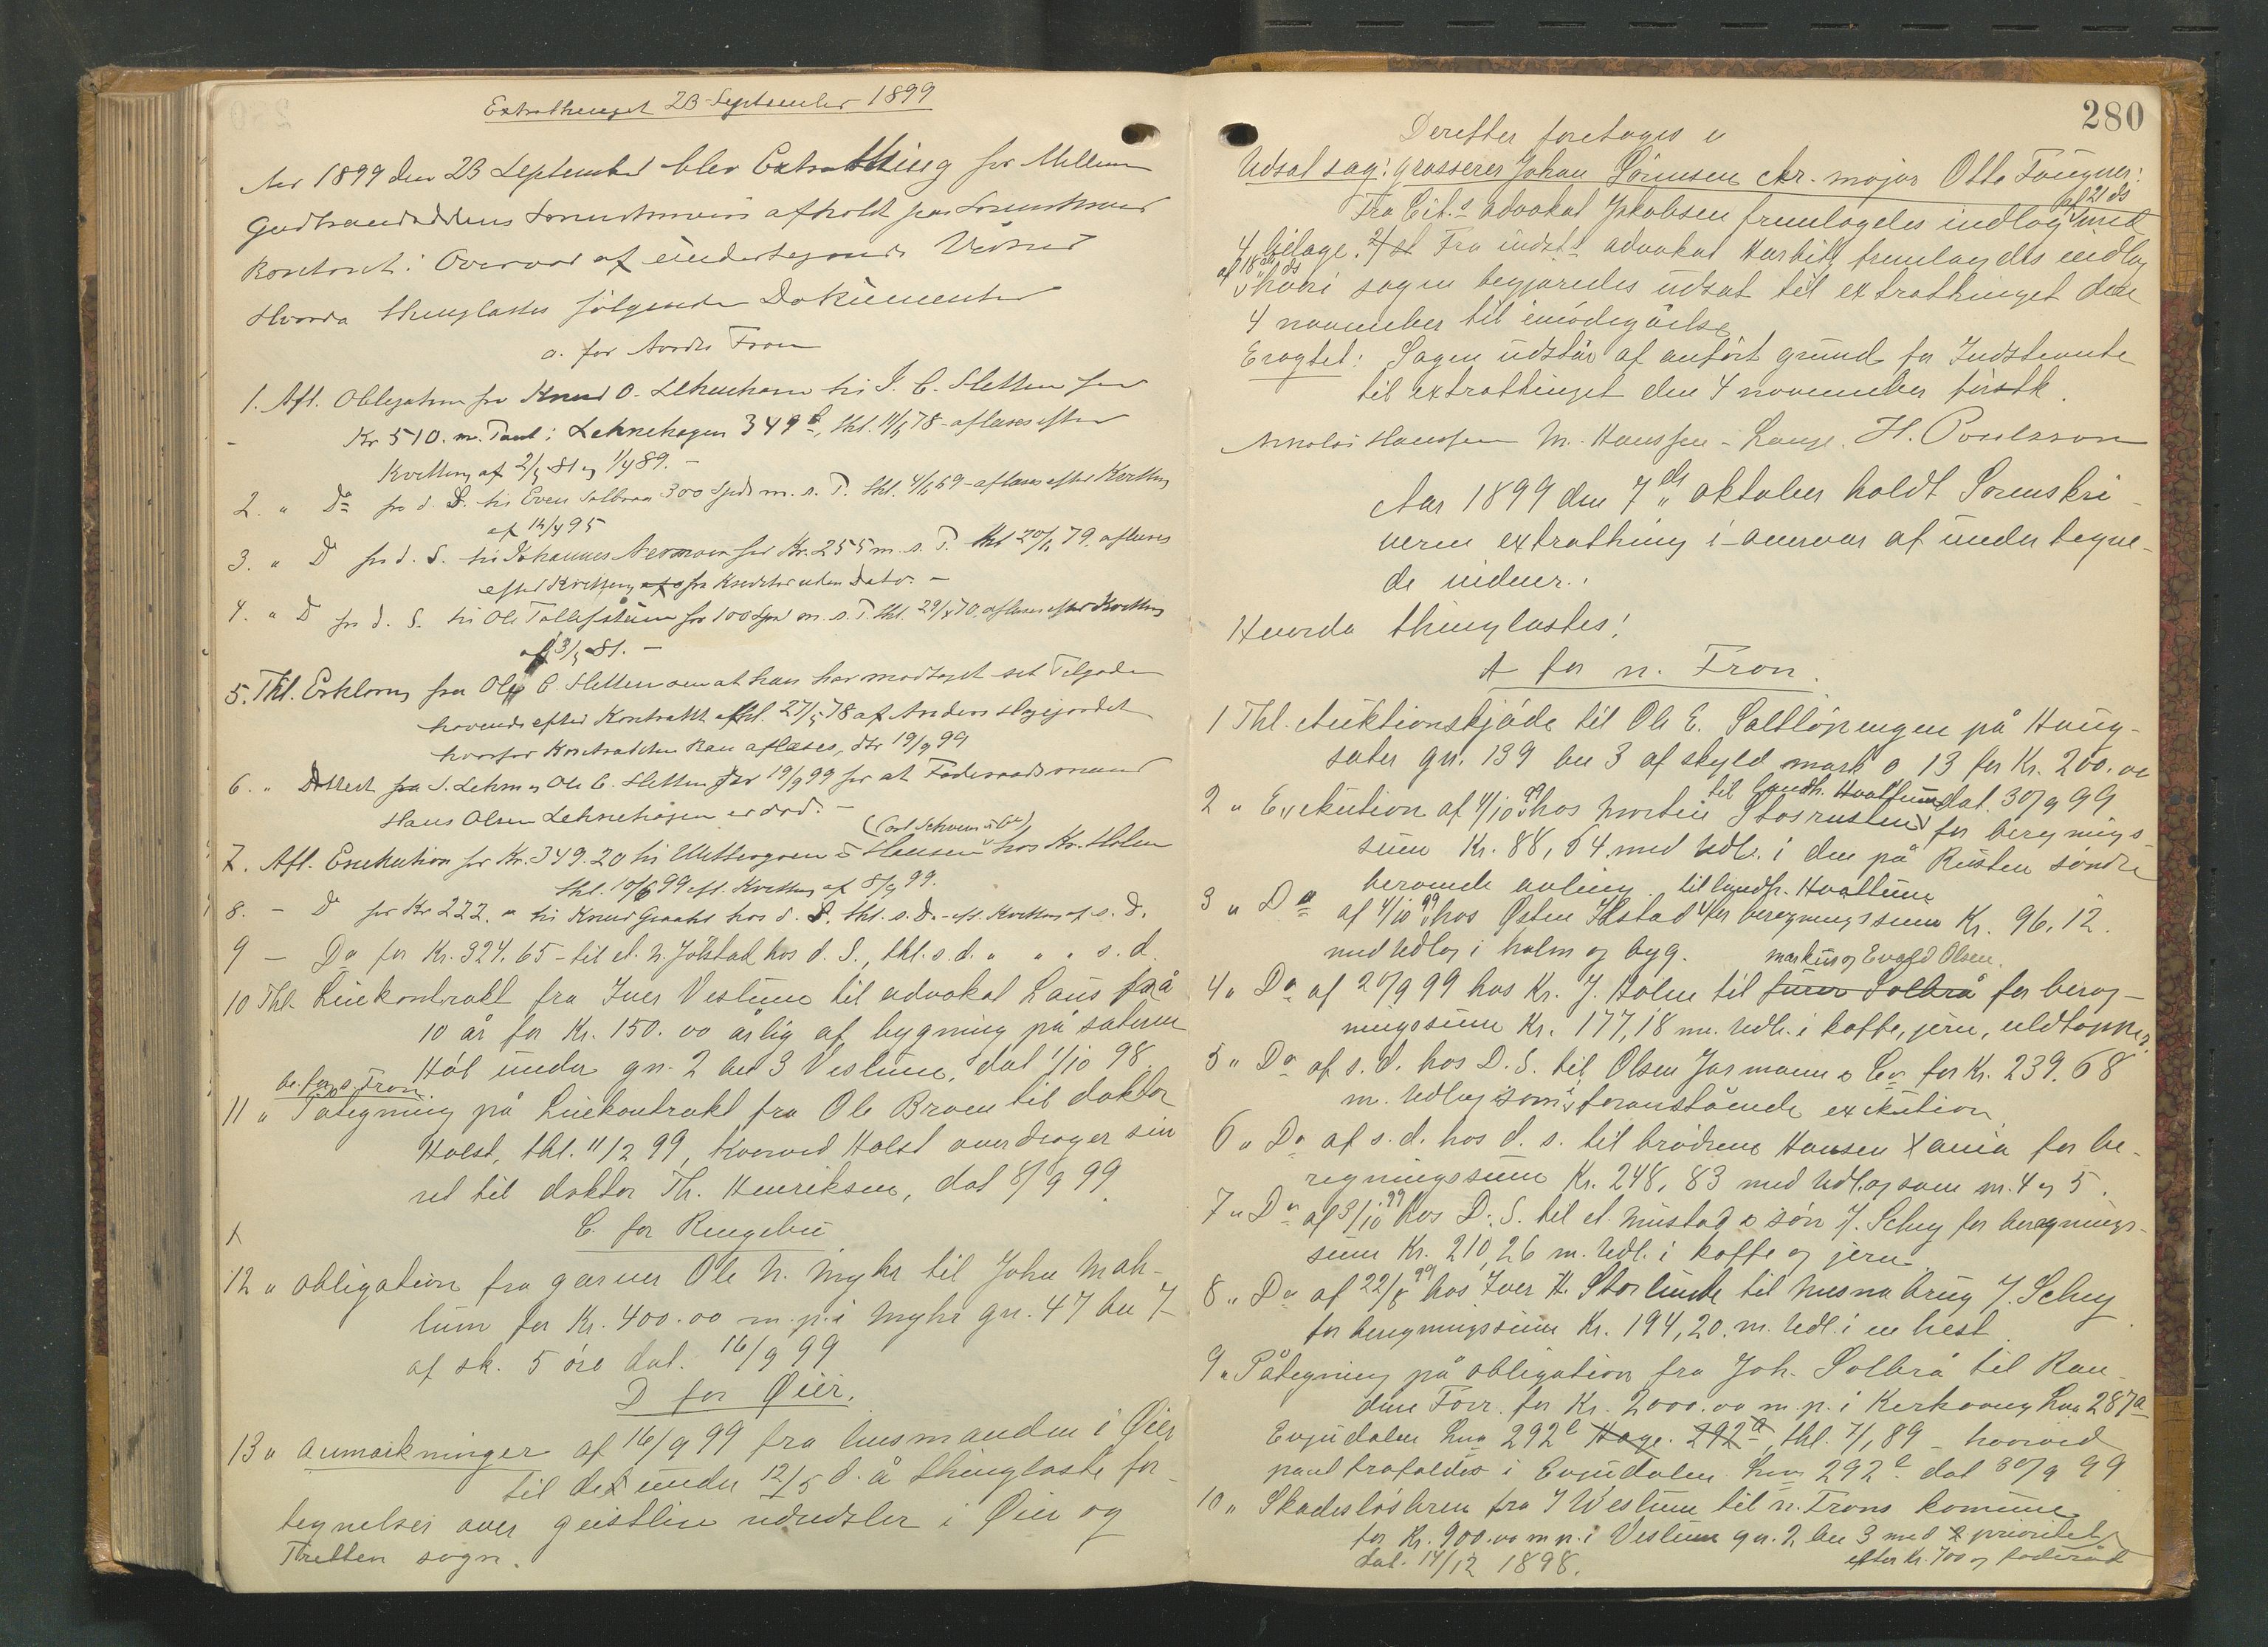 Extrathinget 23 September 1899
Aar 1899 den 23 September blev Extrathing for Mellem
Gudbrandsdalens Sorenskriveri afholdt paa Sorenskriver
Kontoret i Overvær af undertegnede Vidner
Hvorda thinglæstes følgende Dokumenter
a. for Nordre Fron
1. Afl. Obligation fra Knud O. Lehnehaven til I. C. Sletten for
Kr 510. m. Pant i Lehnehagen 349 b, thl. 11/5 78 - aflæses efter
Kvittering af 2/5 81 og 1/4 89. -
2. " Do fra d. S. til Even Solbraa 300 Spd m. s. P. thl. 4/6 69 - aflæses efter Kvittering
af 12/4 95
3. " D fra d. S. til Johannes Nermoen for Kr. 255 m. s. P. thl 20/11 79. aflæses
efter Kvittering fra Kreditor uden Dato. -
4. " D fra d. S. til Ole Tollefstuen for 100 Spd m. s. P. thl. 29/4 70. aflæses efter Kvittering
af 3/5 81. -
5. Thl. Erklæring fra Ole C. Sletten om at han har modtaget sit Tilgode
havende efter Kontrakt thl. 27/5 78 af Anders Hagejordet
hvorfor Kontrakten kan aflæses, dtr 19/9 99
6. " Attest fra S. Lehne og Ole C. Sletten dtr 19/9 99 for at Føderaadsmand
Hans Olsen Lehnehagen er død. -
(Carl Schou & Co)
7. Afl. Exekution for Kr. 349.20 til Hansen hos Kr. Holm
thl. 10/6 99 eft. Kvittering af 8/9 99.
8. - D for Kr 222. " til Knud Graaht hos d. S. thl. s. D. - eft. Kvittering af s. D.
9 - Do for Kr. 324.65 - til A. N. Jølstad hos d. S., thl. s. d. " " " s. d.
10 Thl. Leiekontrakt fra Iver Vestum til advokat Laus på
10 år for Kr. 150.00 årlig af bygning på sæteren
Høt under gn. 2 bn 3 Vestum, dat 1/10 98.
b. for s. Fron
11 " Påtegning på Leiekontrakt fra Ole Broen til doktor
Holst, thl. 11/2 99, hvorved Holst overdrager sin
ret til doktor Th. Henriksen, dat 8/9 99.
C. for Ringebu
X
12 " obligation fra garver Ole N. Myhr til John Mæh-
lum for Kr. 400.00 m. p. i Myhr gn. 47 bn 7
af sk. 5 øre dat. 16/9 99
D for Øier.
13 " anmærkninger af 16/9 99 fra lensmanden i Øier
til det under 12/5 d. å thinglæste for-
tegnelser over geistlige ududsler i Øier og
Tretten sogn.
280
Derefter foretoges
Udsat sag: grosserer Johan Sörensen ctr. major Otto Fougner:
af 21 ds
Fra Cit.s advokat Jakobsen fremlagdes indlæg med
4 bilage. Fra indst.s advokat Harbitz fremlagdes indlæg
af 18 ds
hvori sagen begjæredes udsat til extrathinget den
4 november til imødegåelse
Eragtet: Sagen udstår af anført grund for Indstevnte
til extrathinget den 4 november førstk.
Nikolai Hanssen M. Hanssen-Lange. H. Poulsson
Aar 1899 den 7de oktober holdt Sorenskri-
veren extrathing i overvær af undertegne-
de vidner.
Hvorda thinglæstes:
A for n. Fron.
1 Thl. Auktionskjøde til Ole E. Saltløpengen på Haug-
sæter gn. 139 bn 3 af skyld mark 0 13 for Kr. 200.00
til landh. Hvattum dat. 30/9 99
2 " Exekution af 4/10 99 hos Morten Storrusten for beregnings-
sum Kr. 88,64 med Udl. i den på Rusten søndre
beroende avling. til landh. Hvattum
3 " Do af 4/10 99 hos Østen Ilstad for beregningssum Kr. 96,12.
med Udlæg i halm og byg. markus og Evald Olsen.
4 " Do af 20/9 99 hos Kr. J. Holm til Iver Solbrå for bereg-
ningssum Kr. 177,18 m. Udl. i kaffe, jern, uldtepper
5 " Do af s. d. hos D. S. til Olsen Jarmann & Co for Kr. 239.68
m. Udlæg som i foranstående exekution
6 " Do af s. d. hos d. s. til brødrene Hansen Xania for be-
regningssum Kr. 248,83 med Udlæg som m. 4 og 5.
7 " Do af 3/10 99 hos D. S. til A. Mustad & søn J. Schey for beregnings-
sum Kr. 210,26 m. Udl. i kaffe og jern.
8 " Do af 22/8 99 hos Iver H. Storlunde til Mesna brug J. Schey
for beregningssum Kr. 194,20. m. Udl. i en hest.
9 " Påtegning på obligation fra Joh. Solbrå til Ran-
dine Forr. for Kr. 2000.00 m. p. i Kerkaaug Lnr 287a
Enjudalen Lnr 292c Hage 292a, thl. 7/1 89 - hvorved
pant frafaldes i Enjudalen Lnr 292c dat 30/9 99
10 " Skadesløsbrev fra I Westum til n. Frons komune
for Kr. 900.00 m p. i Vestum gn. 2 bn 3 med 2 prioritet
dat. 14/12 1898. efter Kr. 700 og føderåd